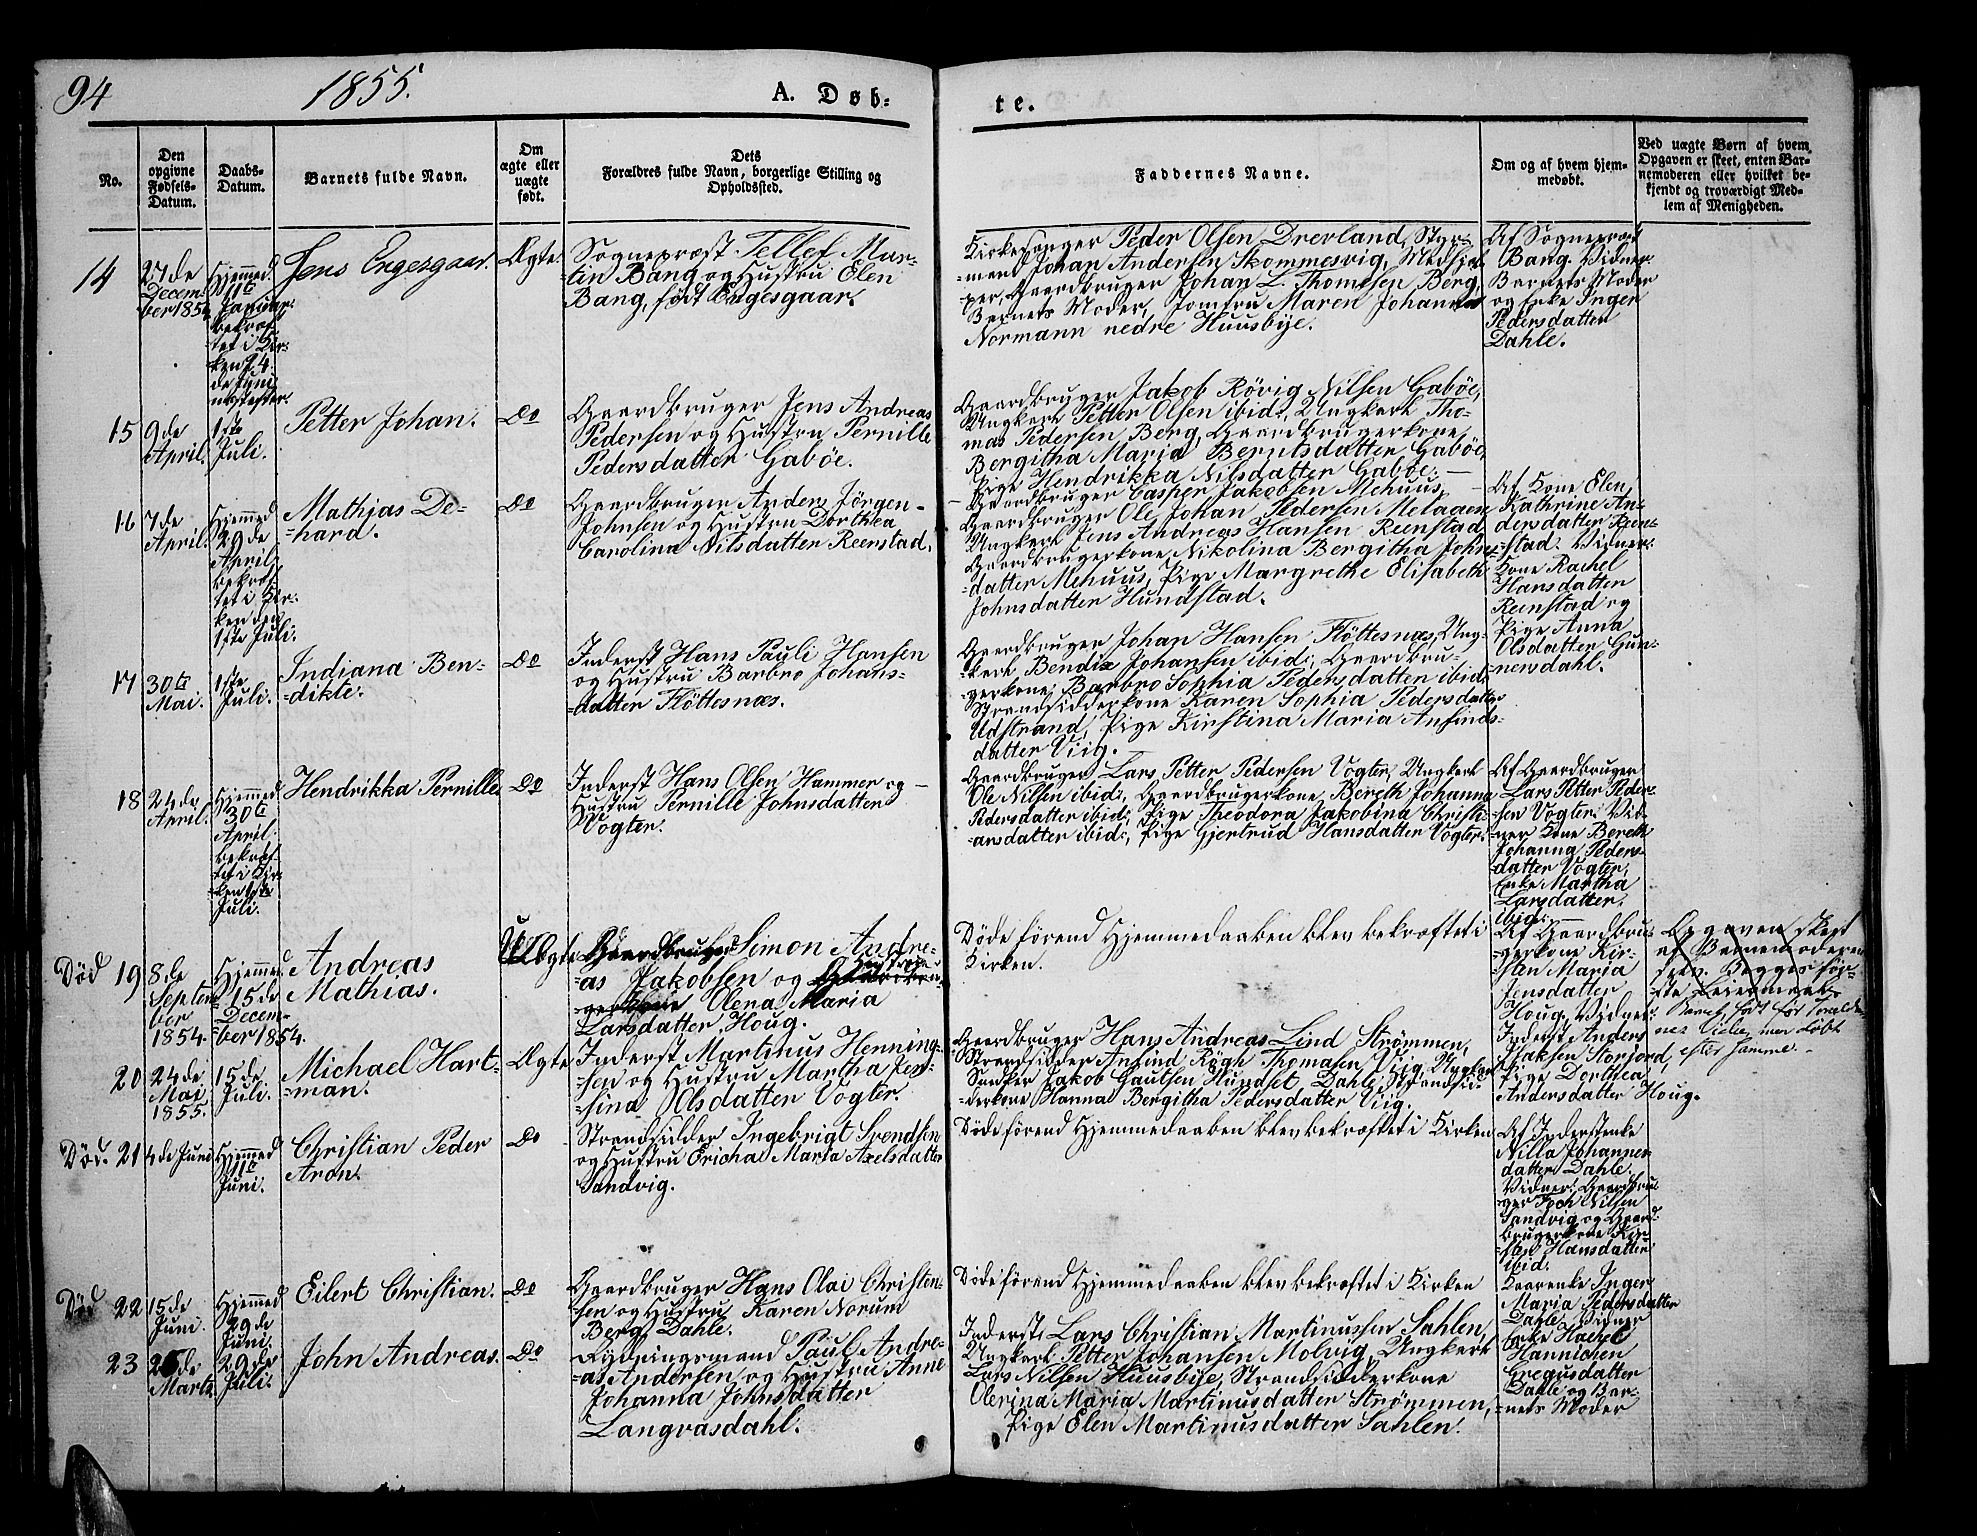 94
1855.
A. Døb-
te.
No.
Den opgivne Fødsels-Datum.
Daabs-Datum.
Barnets fulde Navn.
Om ægte eller uægte født.
Dets Forældres fulde Navn, borgerlige Stilling og Opholdssted.
Faddernes Navne.
Om og af hvem hjem-medøbt.
Ved uægte Børn af hvem Opgaven er skeet, enten Bar-nemoderen eller hvilket be-kjendt og troværdigt Med-lem af Menigheden.
14
27de
Decem-
ber 1854
Hjemmed.
11te
Januar
bekræf-
tet i Kir-
ken 24
de Juni
næstefter.
Jens Engesgaar.
Ægte
Sogneprest Tellef Mar-
tin Bang og Hustru Elen
Bang, født Engesgaar.
Kirkesanger Peder Olsen Drevland, Styr-
mand Johan Andersen Skommesvig, Medhjel-
per, Gaardbruger Johan L. Thomesen Berg,
Barnets Moder, Jomfru Maren Johanna
Normann nedre Huusbye.
Af Sogneprest
Bang. Vidner
Barnets Moder
og Enke Inger
Pedersdatter
Dahle.
15
9de
April.
1ste
Juli.
Petter Johan.
Do
Gaardbruger Jens Andreas
Pedersen og Hustru Pernille
Pedersdatter Gabøe.
Gaardbruger Jakob Rövig Nilsen Gabøe,
Ungkarl Petter Olsen ibid:, Ungkarl Tho-
mas Pedersen Berg, Gaardbrugerkone
Bergitha Maria Berntsdatter Gabøe,
Pige Hendrikka Nilsdatter Gabøe.
16
7de
April.
Hjemmed
29de
April
bekræf-
tet i Kir-
ken den
1ste Juli.
Mathias De-
hard.
Do
Gaardbruger Anders Jörgen
Johnsen og Hustru Dorthea
Carolina Nilsdatter Reenstad.
Gaardbruger Casper Jakobsen Mehuus,
Gaardbruger Ole Johan Pedersen
Ungkarl Jens Andreas Hansen Reenstad
Gaardbrugerkone Nikolina Bergitha Johns-
datter Mehuus, Pige Margrethe Elisabeth
Johnsdatter Hundstad.
Af Kone Elen
Kathrine An-
dersdatter Reen-
stad. Vidner:
Kone Rachel
Hansdatter
Reenstad og
Pige Anna
Olsdatter Gun-
nersdahl.
17
30te
Mai.
1ste
Juli.
Indiana Ben-
dikte.
Do
Inderst Hans Pauli Hansen
og Hustru Barbro Johans-
datter Flöttesnæs.
Gaardbruger Johan Hansen Flöttesnæs, Ung-
karl Bendix Johansen ibid:, Gaardbru-
gerkone Barbro Sophia Pedersdatter ibid:
Strandsidderkone Karen Sophia Pedersdatter
Udstrand, Pige Kirstina Maria Ansinds-
datter Viig.
18
24de
April.
Hjemmed
30te
April.
bekræf-
tet i Kir-
ken 1ste
Juli.
Hendrikka Pernille
Do
Inderst Hans Olsen Hammer og
Hustru Pernille Johnsdatter
Vogter.
Gaardbruger Lars Petter Pedersen Vogter, Ungkarl
Ole Nilsen ibid:, Gaardbrugerkone Bereth Johanna
Pedersdatter ibid:, Pige Theodora Jakobina Christi-
ansdatter ibid:, Pige Gjertrud Hansdatter Vogter.
Af Gaardbruger
Lars Petter Peder-
sen Vogter. Vid-
ner Kone Bereth
Johanna Peders-
datter Vogter,
Enke Martha
Larsdatter
ibid:
Død 19
8de
Septem-
ber
1854.
Hjemmed
15de
Decem-
ber 1854.
Andreas
Mathias.
Uægte
Gaardbruger Simon Andre-
as Jakobsen og Hustrue
Olena Maria
Larsdatter Houg.
Døde førend Hjemmedaaben blev bekræftet i
Kirken.
Af Gaardbru-
gerkone Kir-
sten Maria
Jensdatter
Houg, Vidner:
Inderst Anders
Isaksen Storjord,
Pige Dorthea
Andersdatter Houg.
Opgaven skeet
af Barnemoderen
Begges før-
ste Leiermaal.
Barnet født før Foreldre-
nes Vielse, men døbt
efter samme.
20
24de
Mai
1855.
15de
Juli.
Michael Hart-
man.
Ægte
Inderst Martinus Henning-
sen og Hustru Martha Jen-
sina Olsdatter Vogter.
Gaardbruger Hans Andreas Lind Strømmen,
Strandsidder Ansind Røgh Thomasen Viig, Ungkarl
Jakob Gautsen Hundset Dahle, Strandsid-
derkone Hanna Bergitha Pedersdatter Viig,
Død. 21
4de Juni
Hjemmed
11te
Juni.
Christian Peder
Aron.
Do
Strandsidder Ingebrigt Svendsen
og Hustru Ericha Maria Axelsdatter
Sandvig.
Døde førend Hjemmedaaben blev bekræftet i Kirken
Af Inderstenke
Nilla Johannes-
datter Dahle.
Vidner: Gaardbru-
ger Nilsen
Sandvig og Gaard-
brugerkone Kir-
sten Hansdatter
ibid.
Død 22
15de
Juni.
Hjemmed
29de
Juni.
Eilert Christian.
Do
Gaardbruger Hans Olai Christen-
sen og Hustru Karen Norum
Berg, Dahle.
Døde førend Hjemmedaaben blev bekræftet i Kirken
Inger
Maria Pedersdatter
Dahle, Vidner
Enke
Hannichen
Greausdatter
Dahle og Bar-
nets Moder
23
25de
Marts
29de
Juli.
John Andreas.
Do
Rydningsmand Paul Andre-
as Andersen og Hustru Anne
Johanna Johnsdatter
Langvasdahl.
Inderst Lars Christian Martinussen Sahlen,
Ungkarl Petter Johansen Molvig, Ungkarl
Lars Nilsen Huusbye, Strandsidderkone
Olerina Maria Martinusdatter Strømmen,
Pige Elen Martinusdatter Sahlen.